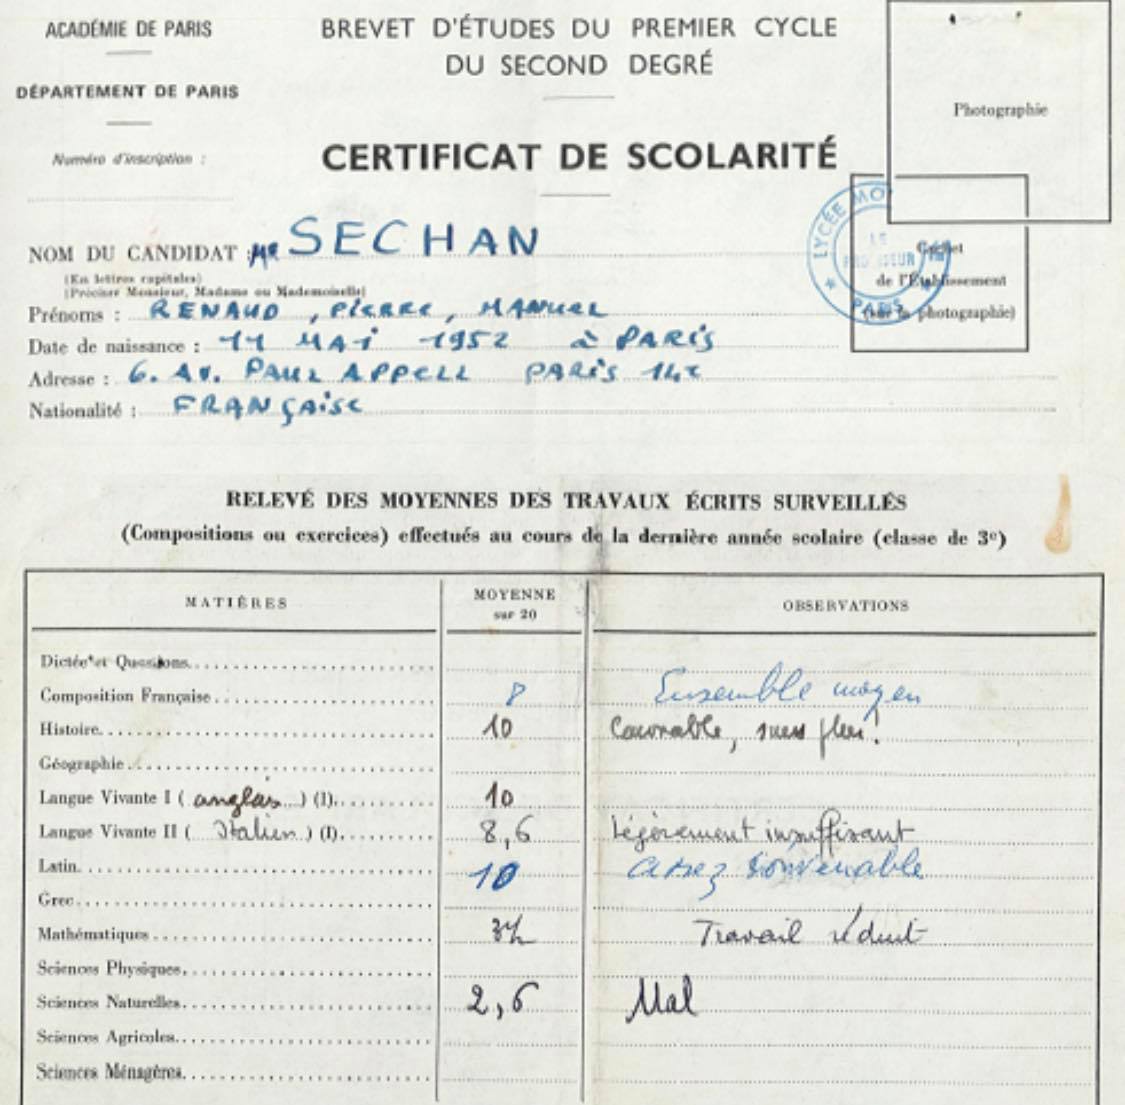 ACADÉMIE DE PARIS
DÉPARTEMENT DE PARIS
Numéro d'inscription :
BREVET D'ÉTUDES DU PREMIER CYCLE
DU SECOND DEGRÉ
CERTIFICAT DE SCOLARITÉ
Photographie
LYCÉE MO
PARIS
Cachet
de l'Établissement
photographie)
NOM DU CANDIDAT : MR SECHAN
(En lettres capitales)
(Préciser Monsieur, Madame ou Mademoiselle)
Prénoms : RENAUD, PIERRE, MANUEL
Date de naissance : 11 MAI 1952 à PARIS
Adresse : 6. AV. PAUL APPELL PARIS 14e
Nationalité : FRANÇAISE
RELEVÉ DES MOYENNES DES TRAVAUX ÉCRITS SURVEILLÉS
(Compositions ou exercices) effectués au cours de la dernière année scolaire (classe de 3e)
MATIÈRES MOYENNE sur 20 OBSERVATIONS
Dictée et Questions
Composition Française 8 Ensemble moyen
Histoire 10 Convenable, sans plus!
Géographie
Langue Vivante I (anglais) (1) 10
Langue Vivante II (Italien) (1) 8,6 Légèrement insuffisant
Latin 10 assez convenable
Grec
Mathématiques Travail réduit
Sciences Physiques
Sciences Naturelles 2,6 Mal
Sciences Agricoles
Sciences Ménagères